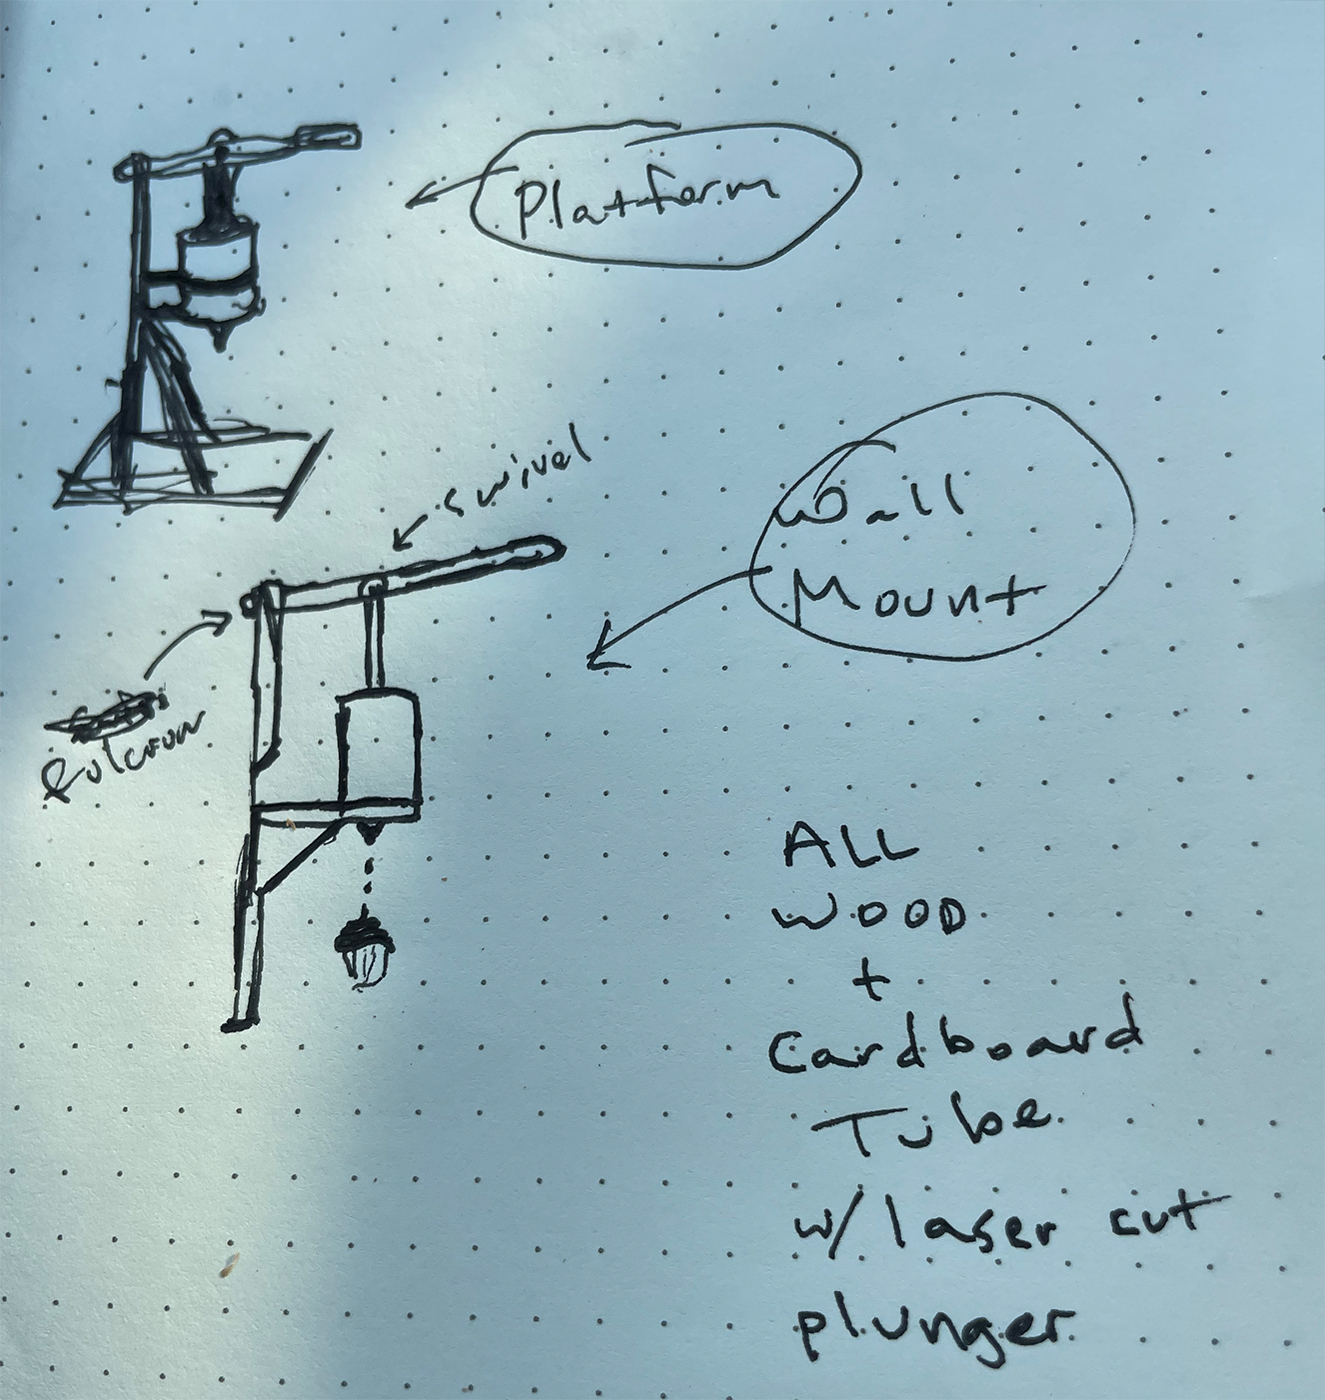 Platform
swivel
Wall
Mount
fulcrum
ALL
WOOD
+
Cardboard
Tube
w/ laser cut
plunger